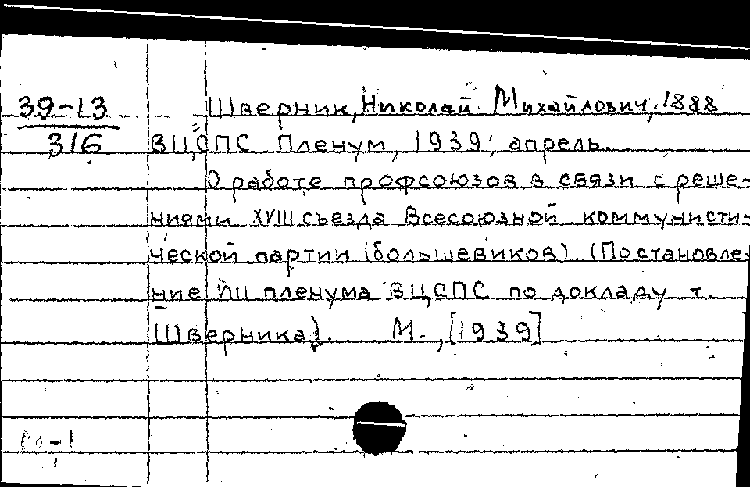 39-13 Шверник, Николай Михайлович, 1888
316 ВЦСПС Пленум, 1939, апрель.
О работе профсоюзов в связи с реше-
ниями XVIII съезда Всесоюзной коммунисти-
ческой партии (большевиков) (Постановле-
ние VII пленума ВЦСПС по докладу т.
Шверника). М., [1939]